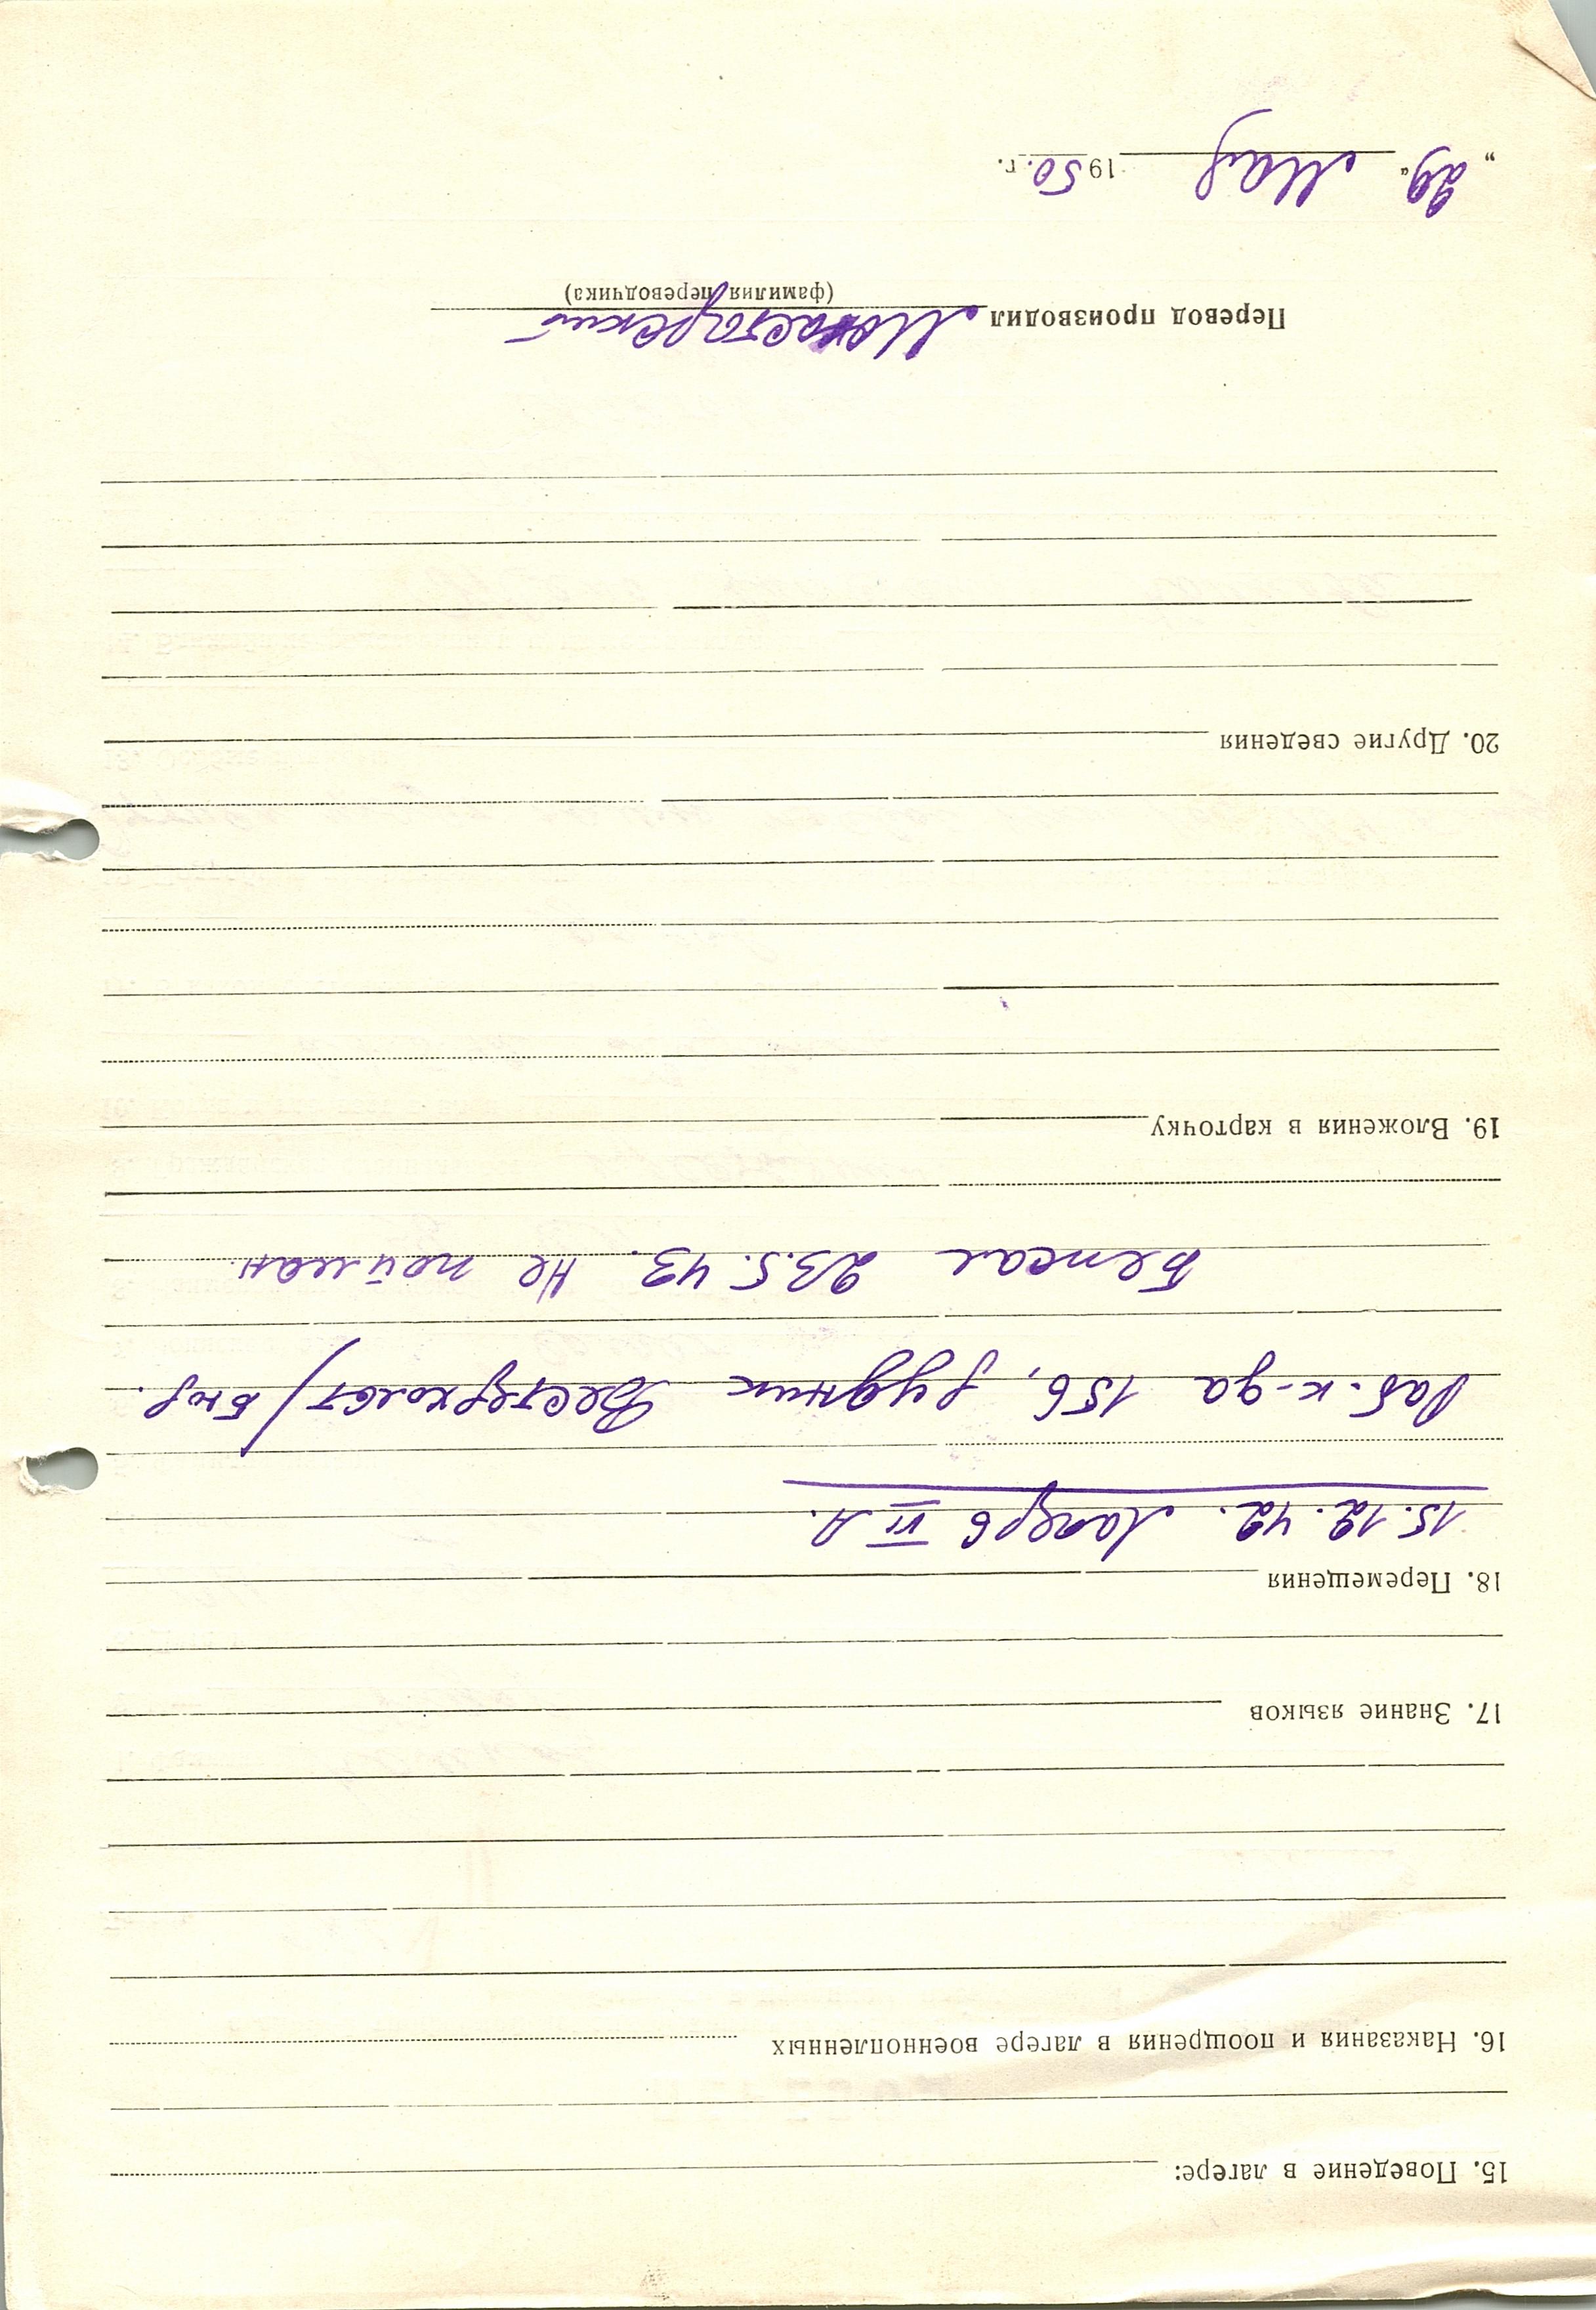 15. Поведение в лагере:
16. Наказания и поощрения в лагере военнопленных
17. Знание языков
18. Перемещения
15.12.42. Лагерь VI А.
Раб. к-да 156, рудник Вестерхольт/Бюр.
Бежал 23.5.43. Не пойман.
19. Вложения в карточку
20. Другие сведения
Перевод производил Монастырский
(фамилия переводчика)
„29“ Мая 1950. г.